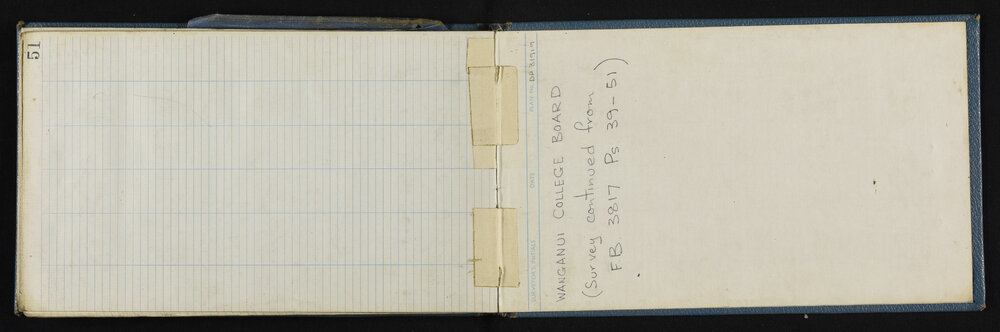 51
SURVEYOR'S INITIALS DATE PLAN No. DP 31919
WANGANUI COLLEGE BOARD
(Survey continued from
F.B. 3817 Ps 39-51)